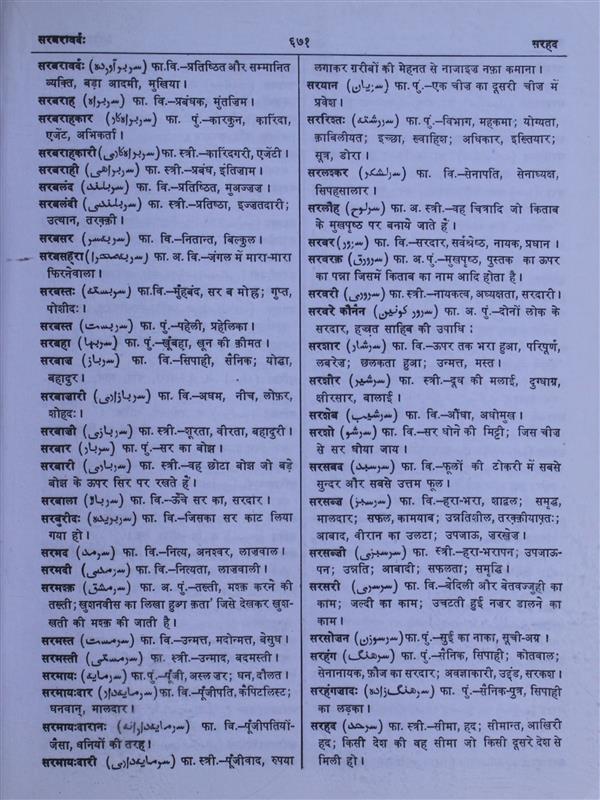 सरबरावर्दः
६७१
सरहद
सरबरावर्दः (سربرآوردہ) फा. वि.–प्रतिष्ठित और सम्मानित
व्यक्ति, बड़ा आदमी, मुखिया।
सरबराह (سربراہ) फा. वि.–प्रबंधक, मुंतज़िम।
सरबराहकार (سربراہکار) फा. पुं.–कारकुन, कारिंदा,
एजेंट, अभिकर्ता।
सरबराहकारी (سربراہکاری) फा. स्त्री.–कारिंदगरी, एजेंटी।
सरबराही (سربراہی) फा. स्त्री.–प्रबंध, इंतिज़ाम।
सरबलंद (سربلند) फा. वि.–प्रतिष्ठित, मुअज्जज़।
सरबलंदी (سربلندی) फा. स्त्री.–प्रतिष्ठा, इज्ज़तदारी;
उत्थान, तरक़्क़ी।
सरबसर (سربسر) फा. वि.–नितान्त, बिल्कुल।
सरबसह्रा (سربصحرا) फा. अ. वि.–जंगल में मारा-मारा
फिरनेवाला।
सरबस्तः (سربستہ) फा.वि.–मुँहबंद, सर ब मोह्र; गुप्त,
पोशीदः।
सरबस्त (سربست) फा. पुं.–पहेली, प्रहेलिका।
सरबहा (سربہا) फा. पुं.–खूँबहा, ख़ून की क़ीमत।
सरबाज़ (سرباز) फा. वि.–सिपाही, सैनिक; योद्धा,
बहादुर।
सरबाज़ारी (سربازاری) फा. वि.–अधम, नीच, लोफ़र,
शोहदः।
सरबाज़ी (سربازی) फा. स्त्री.–शूरता, वीरता, बहादुरी।
सरबार (سربار) फा. पुं.–सर का बोझ।
सरबारी (سرباری) फा. स्त्री.–वह छोटा बोझ जो बड़े
बोझ के ऊपर सिर पर रखते हैं।
सरबाला (سربالا) फा. वि.–ऊँचे सर का, सरदार।
सरबुरीदः (سربریدہ) फा. वि.–जिसका सर काट लिया
गया हो।
सरमद (سرمد) फा. वि.–नित्य, अनश्वर, लाज़वाल।
सरमदी (سرمدی) फा. वि.–नित्यता, लाज़वाली।
सरमश्क़ (سرمشق) फा. अ. पुं.–तख़्ती, मश्क़ करने की
तख़्ती; ख़ुशनवीस का लिखा हुआ क़ता' जिसे देखकर ख़ुश-
ख़ती की मश्क़ की जाती है।
सरमस्त (سرمست) फा. वि.–उन्मत्त, मदोन्मत्त, बेसुध।
सरमस्ती (سرمستی) फा. स्त्री.–उन्माद, बदमस्ती।
सरमायः (سرمایہ) फा. पुं.–पूँजी, अस्ल ज़र; धन, दौलत।
सरमायःदार (سرمایہدار) फा. वि.–पूँजीपति, कैपिटलिस्ट;
धनवान्, मालदार।
सरमायःदारानः (سرمایہدارانہ) फा. वि.–पूँजीपतियों-
जैसा, धनियों की तरह।
सरमायःदारी (سرمایہداری) फा. स्त्री.–पूँजीवाद, रुपया
लगाकर ग़रीबों की मेहनत से नाजाइज़ नफ़ा कमाना।
सरयान (سریان) फा. पुं.–एक चीज़ का दूसरी चीज़ में
प्रवेश।
सररिश्तः (سررشتہ) फा. पुं.–विभाग, महकमा; योग्यता,
क़ाबिलीयत; इच्छा, ख़्वाहिश; अधिकार, इख़्तियार;
सूत्र, डोरा।
सरलश्कर (سرلشکر) फा. वि.–सेनापति, सेनाध्यक्ष,
सिपहसालार।
सरलौह (سرلوح) फा. अ. स्त्री.–वह चित्रादि जो किताब
के मुखपृष्ठ पर बनाये जाते हैं।
सरवर (سرور) फा. वि.–सरदार, सर्वश्रेष्ठ, नायक, प्रधान।
सरवरक़ (سرورق) फा. अ. पुं.–मुखपृष्ठ, पुस्तक का ऊपर
का पन्ना जिसमें किताब का नाम आदि होता है।
सरवरी (سروری) फा. स्त्री.–नायकत्व, अध्यक्षता, सरदारी।
सरवरे कौनैन (سرور کونین) फा. अ. पुं.–दोनों लोक के
सरदार, हज़्रत साहिब की उपाधि।
सरशार (سرشار) फा. वि.–ऊपर तक भरा हुआ, परिपूर्ण,
लबरेज़; छलकता हुआ; उन्मत्त, मस्त।
सरशीर (سرشیر) फा. स्त्री.–दूध की मलाई, दुग्धाग्र,
क्षीरसार, बालाई।
सरशेब (سرشیب) फा. वि.–औंधा, अधोमुख।
सरशो (سرشو) फा. वि.–सर धोने की मिट्टी; जिस चीज़
से सर धोया जाय।
सरसबद (سرسبد) फा. वि.–फूलों की टोकरी में सबसे
सुन्दर और सबसे उत्तम फूल।
सरसब्ज़ (سرسبز) फा. वि.–हरा-भरा, शाद्वल; समृद्ध,
मालदार; सफल, कामयाब; उन्नतिशील, तरक़्क़ीयाफ़्तः;
आबाद, वीरान का उलटा; उपजाऊ, ज़रख़ेज़।
सरसब्ज़ी (سرسبزی) फा. स्त्री.–हरा-भरापन; उपजाऊ-
पन; उन्नति; आबादी; सफलता; समृद्धि।
सरसरी (سرسری) फा. वि.–बेदिली और बेतवज्जुही का
काम; जल्दी का काम; उचटती हुई नज़र डालने का
काम।
सरसोज़न (سرسوزن) फा. पुं.–सुई का नाका, सूची-अग्र।
सरहंग (سرہنگ) फा. पुं.–सैनिक, सिपाही; कोतवाल;
सेनानायक, फ़ौज का सरदार; अवज्ञाकारी, उद्दंड, सरकश।
सरहंगज़ादः (سرہنگزادہ) फा. पुं.–सैनिक-पुत्र, सिपाही
का लड़का।
सरहद (سرحد) फा. स्त्री.–सीमा, हद; सीमान्त, आख़िरी
हद; किसी देश की वह सीमा जो किसी दूसरे देश से
मिली हो।